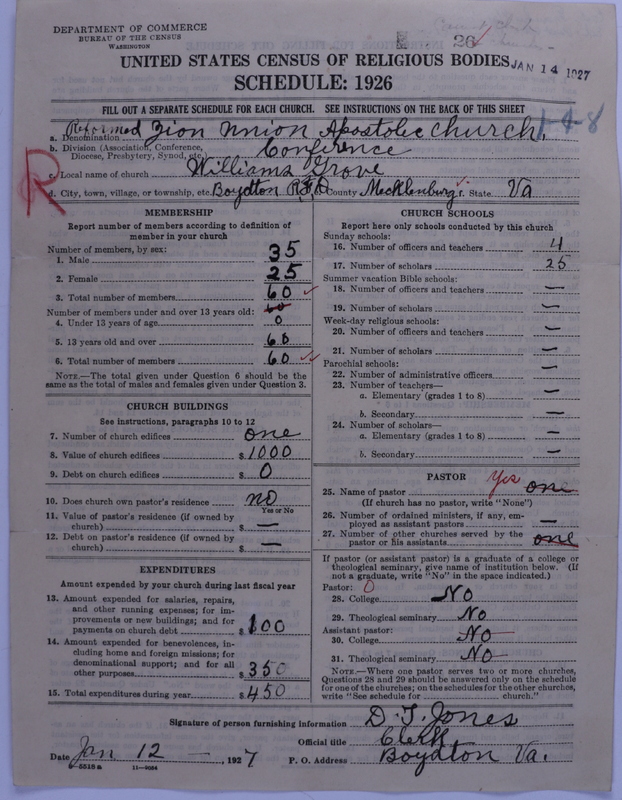 DEPARTMENT OF COMMERCE
BUREAU OF THE CENSUS
WASHINGTON
26
UNITED STATES CENSUS OF RELIGIOUS BODIES
JAN 14 1927
SCHEDULE: 1926
FILL OUT A SEPARATE SCHEDULE FOR EACH CHURCH. SEE INSTRUCTIONS ON THE BACK OF THIS SHEET
a. Denomination Reformed Zion Union Apostolic Church. 1-4-8
b. Division (Association, Conference, Diocese, Presbytery, Synod, etc.) Conference
R
c. Local name of church Williams Grove
d. City, town, village, or township, etc. Boydton RFD e. County Mecklenburg f. State Va
MEMBERSHIP
Report number of members according to definition of
member in your church
Number of members, by sex:
1. Male 35
2. Female 25
3. Total number of members 60
Number of members under and over 13 years old: 60
4. Under 13 years of age 0
5. 13 years old and over 60
6. Total number of members 60
NOTE.—The total given under Question 6 should be
same as the total of males and females given under Question 3.
CHURCH BUILDINGS
See instructions, paragraphs 10 to 12
7. Number of church edifices one
8. Value of church edifices $ 1000
9. Debt on church edifices $ 0
10. Does church own pastor's residence no
Yes or No
11. Value of pastor's residence (if owned by
church) $ —
12. Debt on pastor's residence (if owned by
church) $ —
EXPENDITURES
Amount expended by your church during last fiscal year
13. Amount expended for salaries, repairs,
and other running expenses; for im-
provements or new buildings; and for
payments on church debt $ 100
14. Amount expended for benevolences, in-
cluding home and foreign missions; for
denominational support; and for all
other purposes $ 350
15. Total expenditures during year $ 450
CHURCH SCHOOLS
Report here only schools conducted by this church
Sunday schools:
16. Number of officers and teachers 4
17. Number of scholars 25
Summer vacation Bible schools:
18. Number of officers and teachers —
19. Number of scholars —
Week-day religious schools:
20. Number of officers and teachers —
21. Number of scholars —
Parochial schools:
22. Number of administrative officers —
23. Number of teachers—
a. Elementary (grades 1 to 8) —
b. Secondary —
24. Number of scholars—
a. Elementary (grades 1 to 8) —
b. Secondary —
PASTOR
25. Name of pastor Yes one
(If church has no pastor, write "None")
26. Number of ordained ministers, if any, em-
ployed as assistant pastors —
27. Number of other churches served by the
pastor or his assistants one
If pastor (or assistant pastor) is a graduate of a college or
theological seminary, give name of institution below. (If
not a graduate, write "No" in the space indicated.)
Pastor: 0
28. College No
29. Theological seminary No
Assistant pastor:
30. College No
31. Theological seminary No
NOTE.—Where one pastor serves two or more churches,
Questions 28 and 29 should be answered only on the schedule
for one of the churches; on the schedules for the other churches,
write "See schedule for church."
Signature of person furnishing information D. T. Jones
Official title Clerk
Date Jan 12 — , 1927 P. O. Address Boydton Va.
8-5518a 11-9064